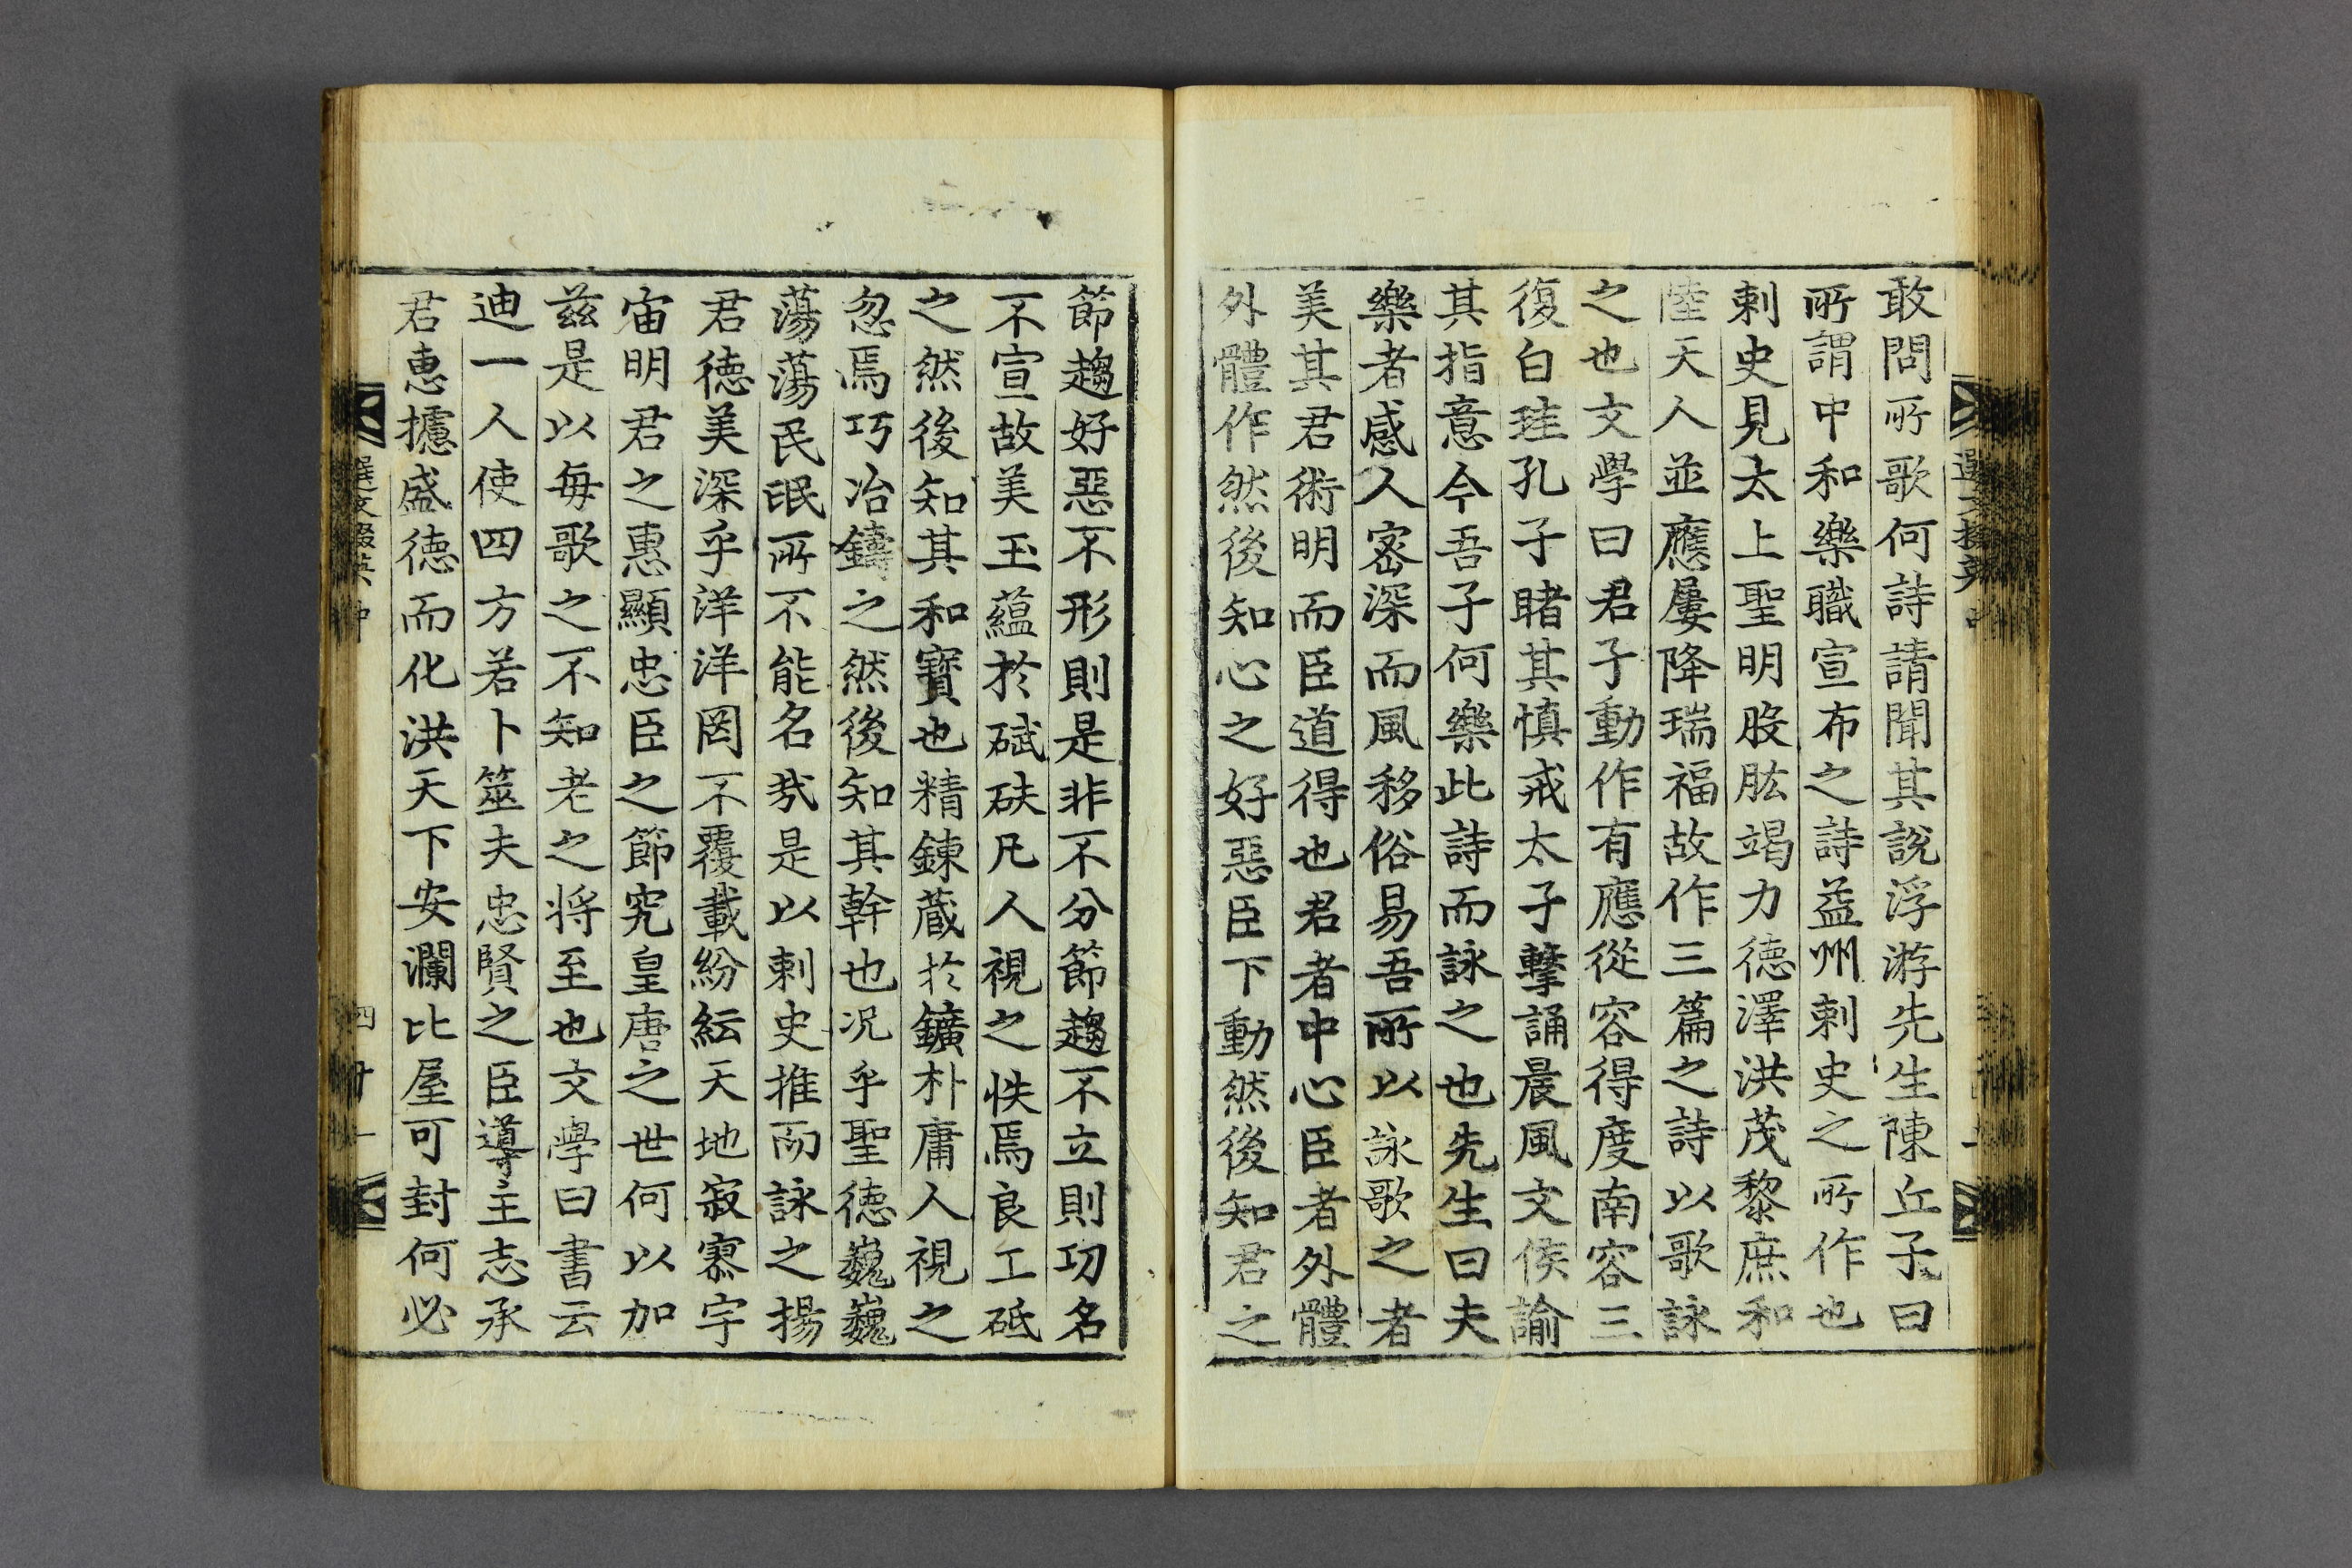 敢問所歌何詩請聞其說浮游先生陳丘子曰
所謂中和樂職宣布之詩益州刺史之所作也
刺史見太上聖明股肱竭力德澤洪茂黎庶和
陸天人並應屢降瑞福故作三篇之詩以歌詠
之也文學曰君子動作有應從容得度南容三
復白珪孔子睹其慎戒太子擊誦晨風文侯諭
其指意今吾子何樂此詩而詠之也先生曰夫
樂者感人密深而風移俗易吾所以詠歌之者
美其君術明而臣道得也君者中心臣者外體
外體作然後知心之好惡臣下動然後知君之
節趨好惡不形則是非不分節趨不立則功名
不宣故美玉蘊於碔砆凡人視之怢焉良工砥
之然後知其和寶也精鍊蔵於鑛朴庸人視之
忽焉巧冶鑄之然後知其幹也况乎聖德巍巍
蕩蕩民氓所不能名哉是以刺史推而詠之揚
君德美深乎洋洋罔不覆載紛紜天地寂寥宇
宙明君之惠顯忠臣之節究皇唐之世何以加
茲是以每歌之不知老之将至也文學曰書云
迪一人使四方若卜筮夫忠賢之臣導主志承
君惠攄盛德而化洪天下安瀾比屋可封何必
選文掇英 中
四 廿一